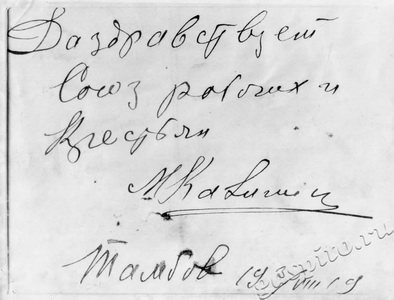 Да здравствует
Союз рабочих и
Крестьян
М Калинин
Тамбов 19 VIII 19